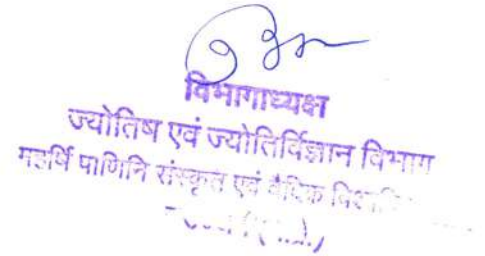 विभागाध्यक्ष
ज्योतिष एवं ज्योतिर्विज्ञान विभाग
महर्षि पाणिनि संस्कृत एवं वैदिक